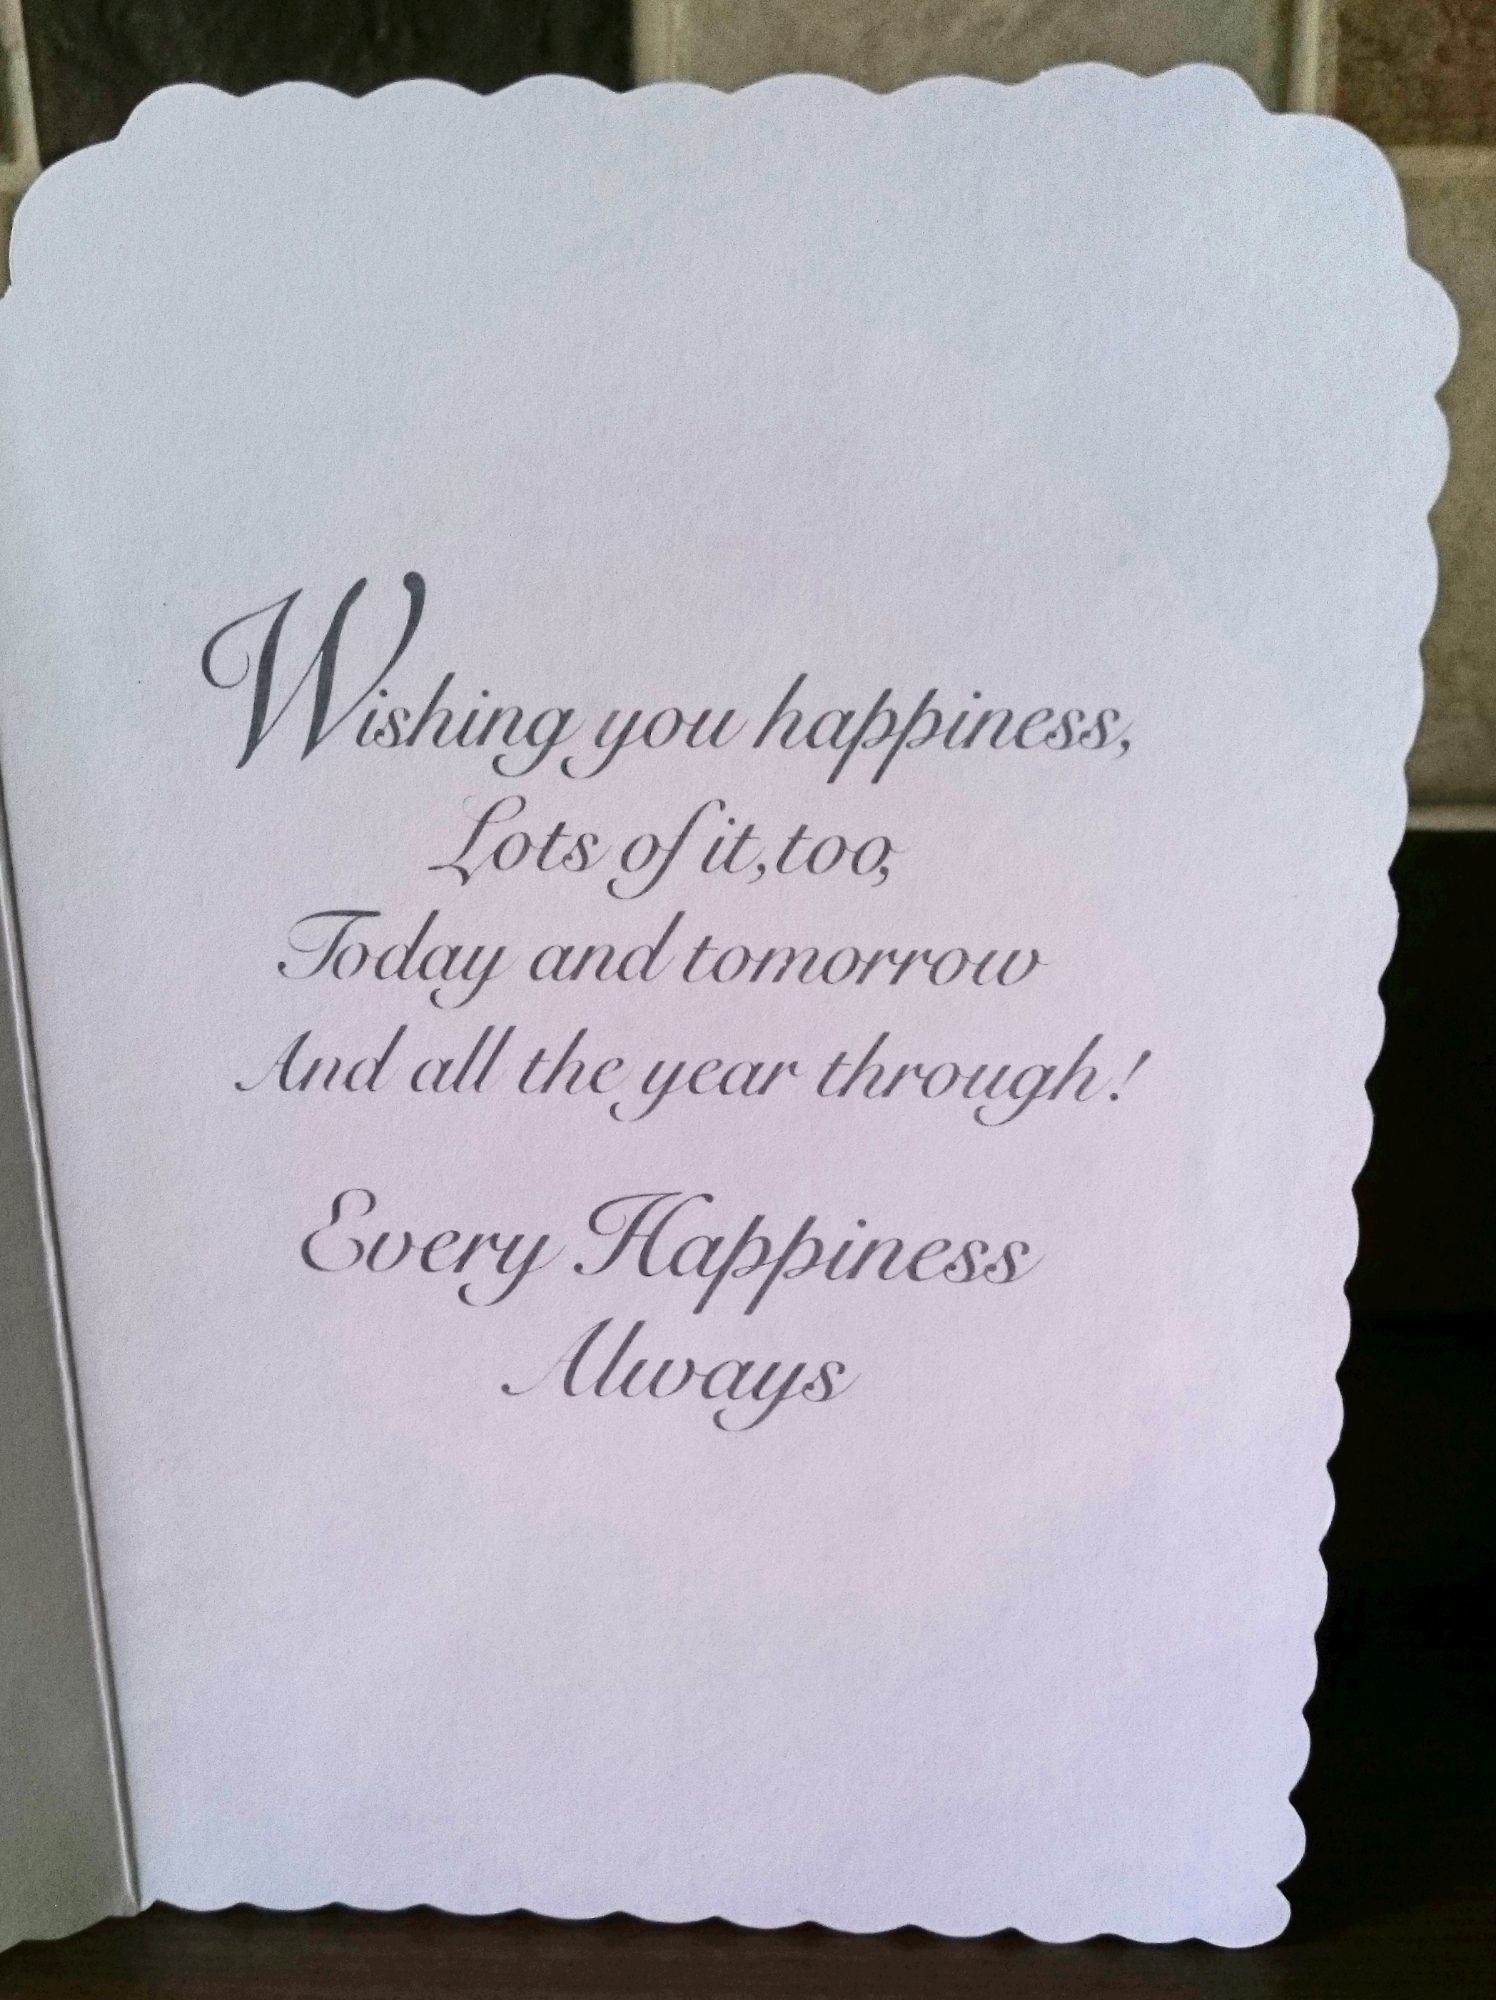 Wishing you happiness,
Lots of it, too,
Today and tomorrow
And all the year through!
Every Happiness
Always